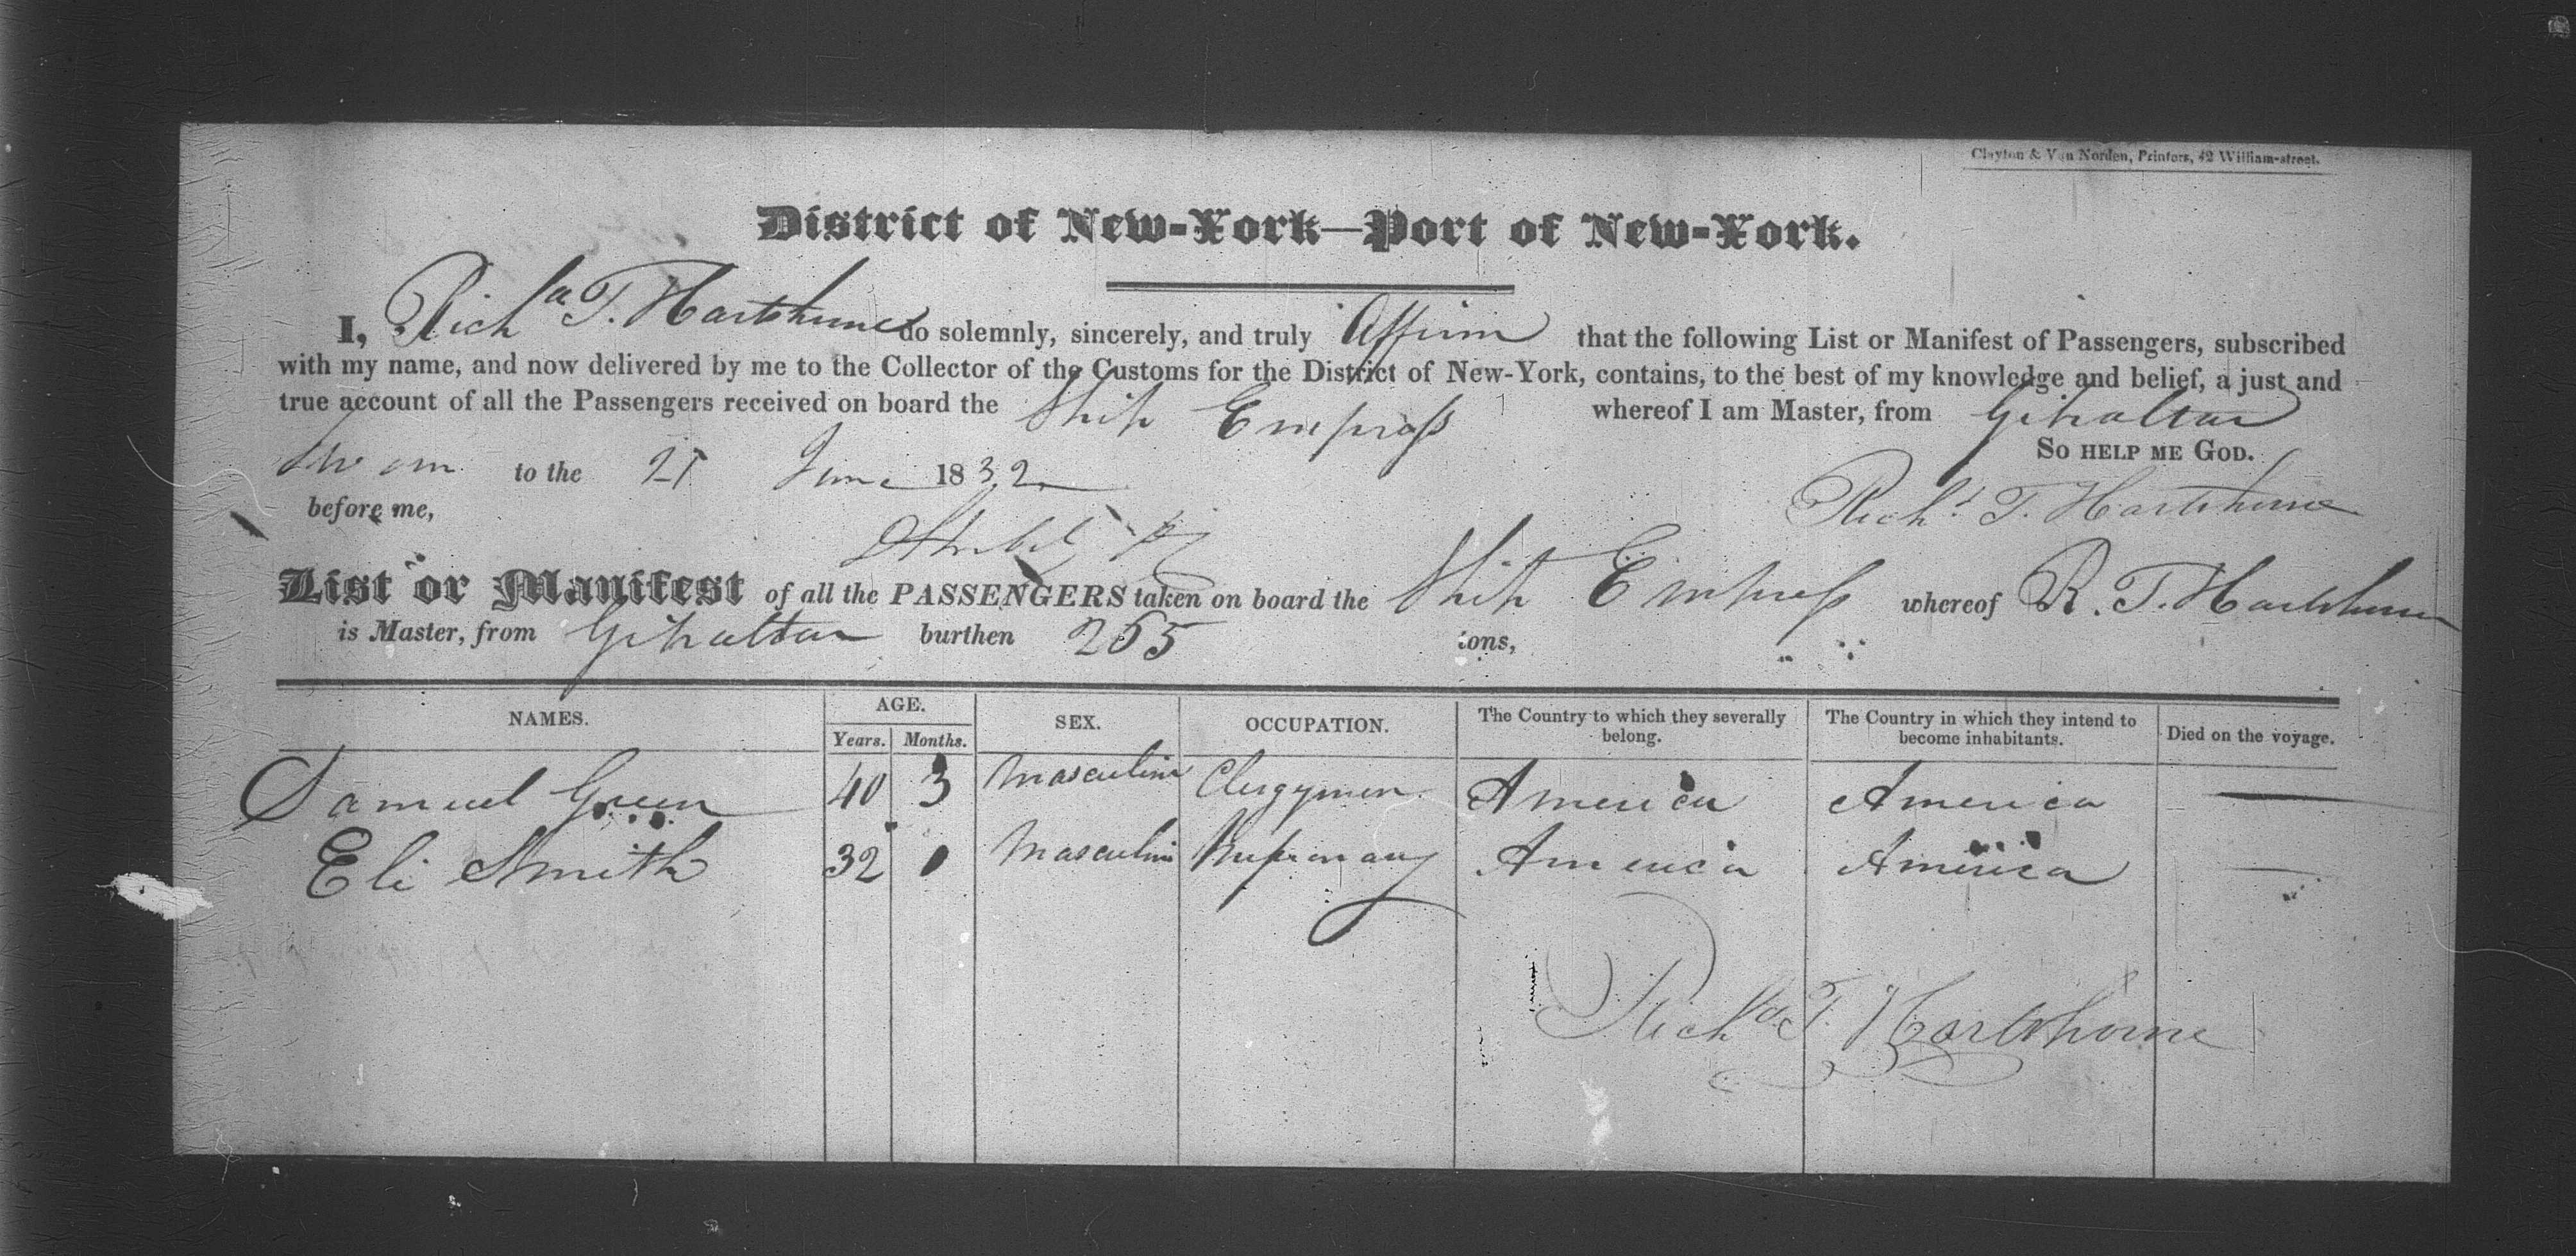 Clayton & Van Norden, Printers, 42 William-street.
District of New-York—Port of New-York.
I, Richd T. Hartshorne do solemnly, sincerely, and truly Affirm that the following List or Manifest of Passengers, subscribed
with my name, and now delivered by me to the Collector of the Customs for the District of New-York, contains, to the best of my knowledge and belief, a just and
true account of all the Passengers received on board the Ship Empress whereof I am Master, from Gibraltar
So help me God.
Sworn to the 21 June 1832
before me, Richd T. Hartshorne
List or Manifest of all the PASSENGERS taken on board the Ship Empress whereof R. T. Hartshorne
is Master, from Gibraltar burthen 265 tons,
NAMES. AGE. Years. Months. SEX. OCCUPATION. The Country to which they severally belong. The Country in which they intend to become inhabitants. Died on the voyage.
Samuel Green 40 3 Masculine Clergyman America America —
Eli Smith 32 Masculine America America —
Richd T. Hartshorne